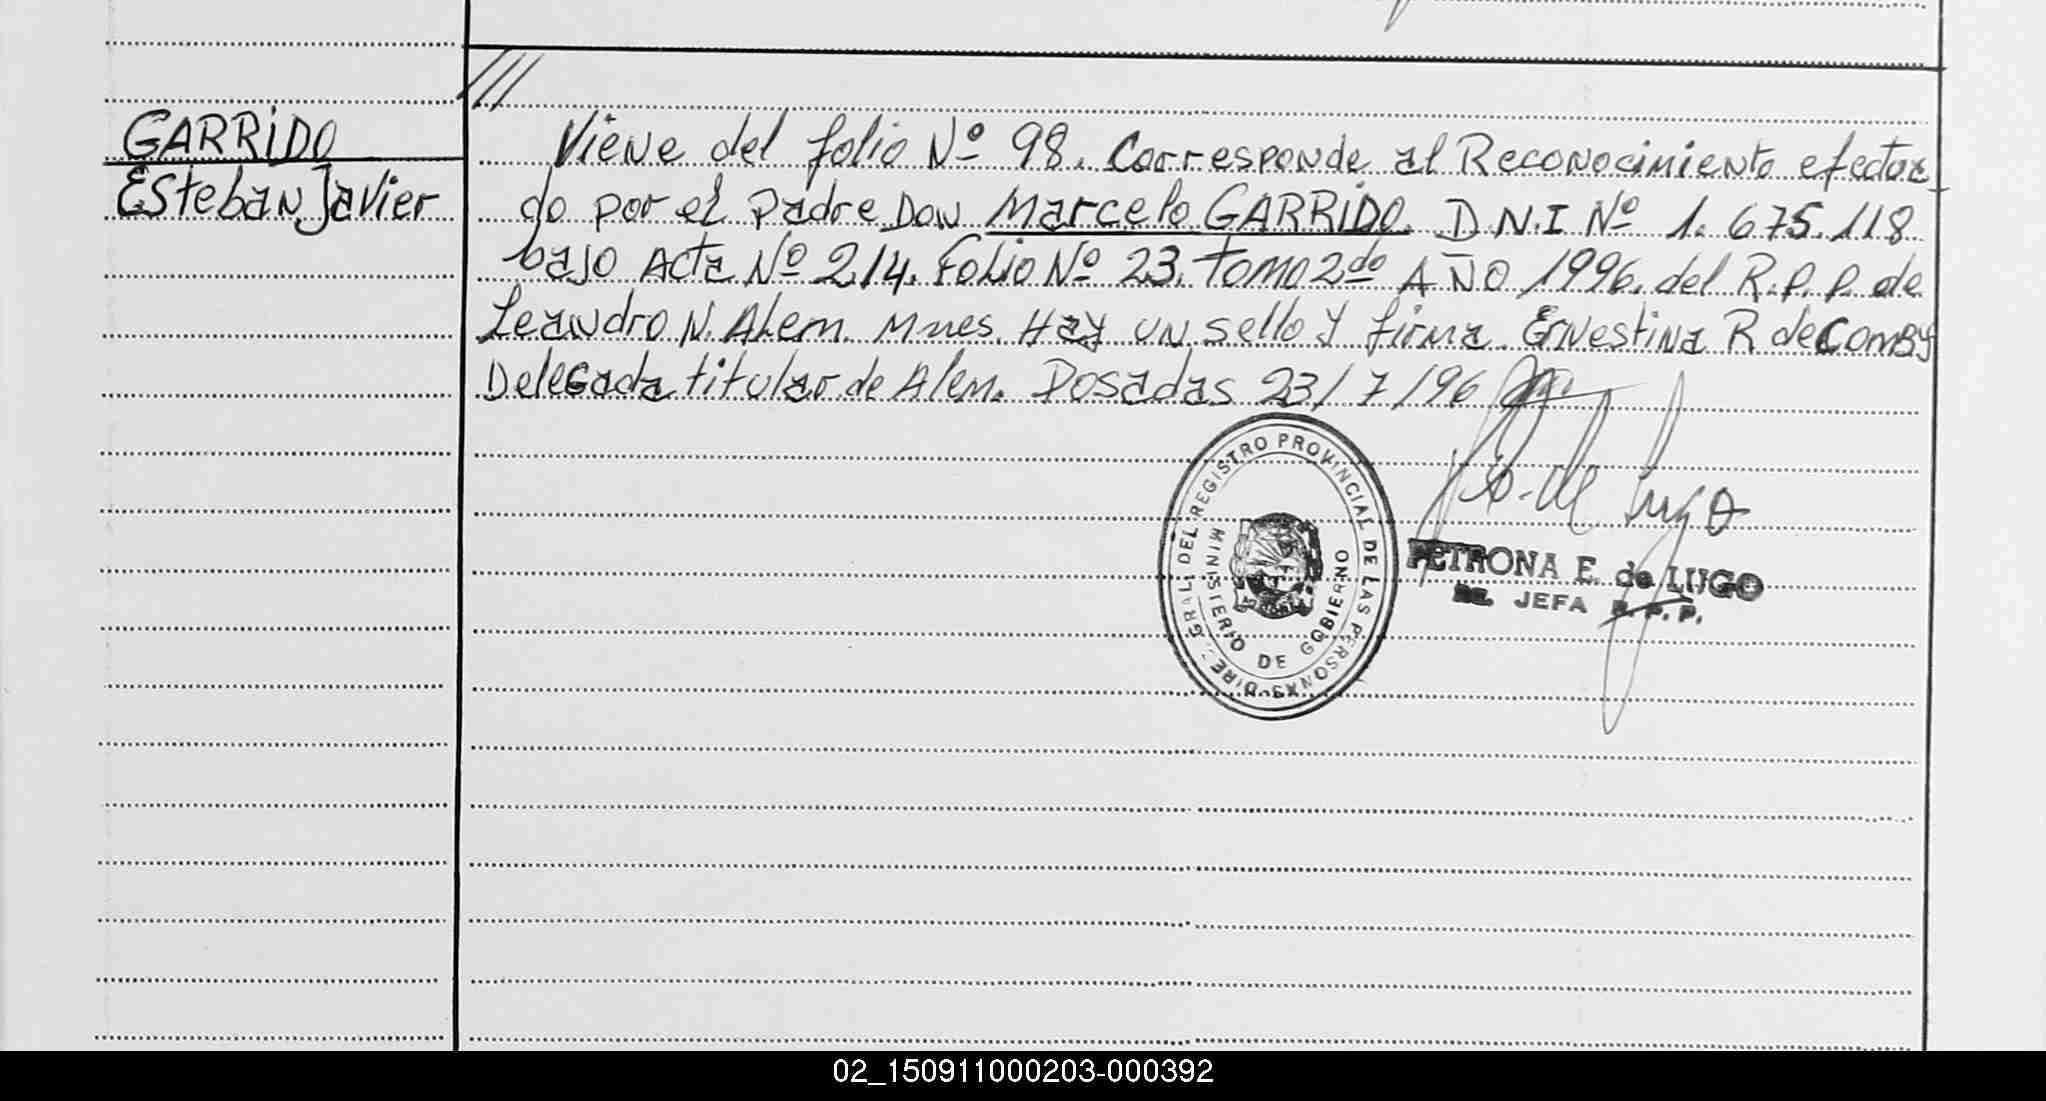 ///
GARRIDO
Esteban Javier
Viene del folio Nº 98. Corresponde al Reconocimiento efectua
do por el Padre Don Marcelo GARRIDO. D.N.I Nº 1.675.118
bajo Acta Nº 214. Folio Nº 23. Tomo 2do AÑO 1996. del R.P.P. de
Leandro N. Alem. Mnes. Hay un sello y firma. Ernestina R de Comby
Delegada titular de Alem. Posadas 23/7/96
DIREC. GRAL. DEL REGISTRO PROVINCIAL DE LAS PERSONAS
MINISTERIO DE GOBIERNO
de Lugo
PETRONA E. de LUGO
JEFA R.P.P.
02_150911000203-000392